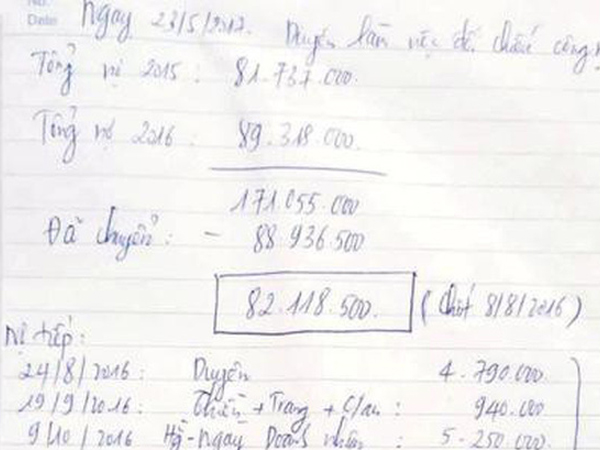 No.
Date
Ngày 23/5/2017. Duyên làm việc đối chiếu công
Tổng nợ 2015 : 81.737.000.
Tổng nợ 2016 : 89.318.000.
171.055.000
Đã chuyển : - 88 936.500
82.118.500. (Chốt 8/8/2016)
Nợ tiếp:
24/8/2016 : Duyên 4.790.000
19/9/2016 : + Trang + : 940.000
9/10/2016 - Ngày Doanh nhân : 5.250.000